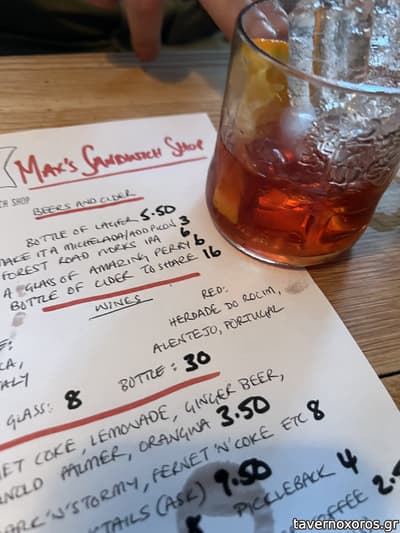 MAX'S SANDWICH SHOP
CH SHOP
BEERS AND CIDER
BOTTLE OF LAGER 5.50
MAKE IT A MICHELADA/ADD PICON 3
FOREST ROAD WORKS IPA 6
A GLASS OF AMAZING PERRY 6
BOTTLE OF CIDER TO SHARE 16
WINES
RED:
HERDADE DO ROCIM,
ALENTEJO, PORTUGAL
GLASS: 8 BOTTLE: 30
DIET COKE, LEMONADE, GINGER BEER,
ARNOLD PALMER, ORANGINA 3.50
DARK 'N' STORMY, FERNET 'N' COKE ETC 8
TAILS (ASK) 9.50
PICKLEBACK 4
COFFEE 2.5
tavernoxoros.gr